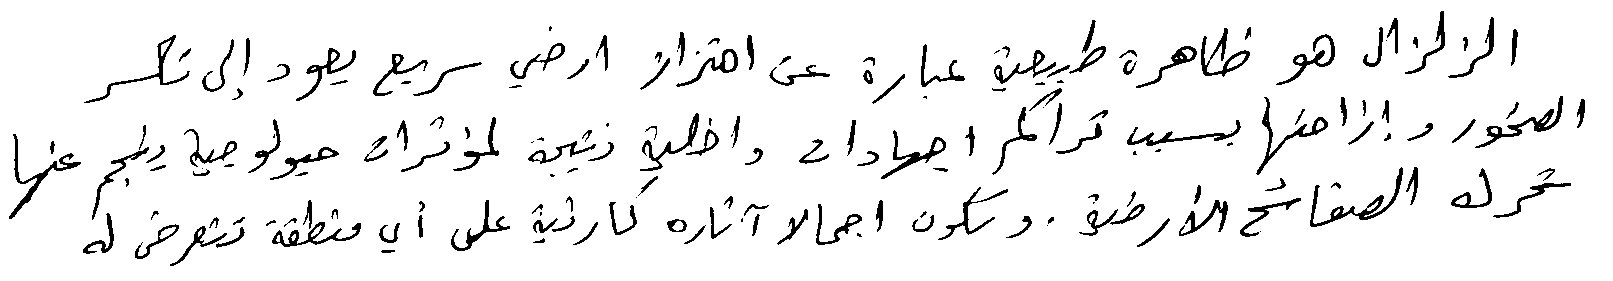 الزلزال هو ظاهرة طبيعية عبارة عن اهتزاز ارضي سريع يعود إلى تكسر
الصخور وإزاحتها بسبب تراكم اجهادات داخلية نتيجة لمؤثرات جيولوجية ينجم عنها
تحرك الصفائح الأرضية. وتكون اجمالا آثاره كارثية على أي منطقة تتعرض له